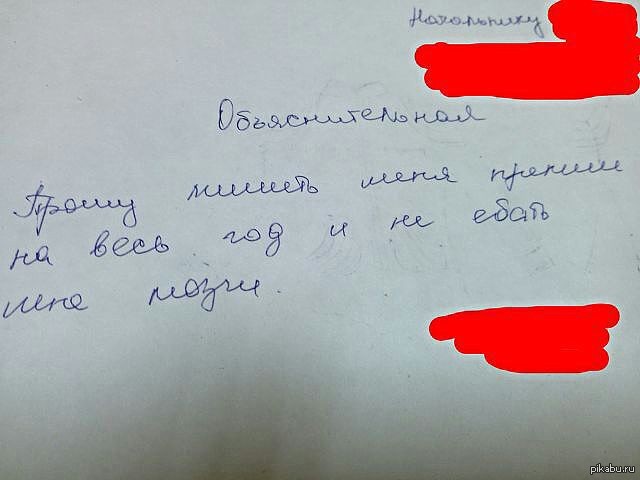 Начальнику
Объяснительная
Прошу лишить меня премии
на весь год и не ебать
мне мозги.
pikabu.ru